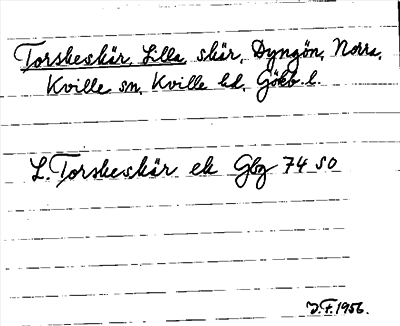 Torskeskär, Lilla, skär, Dyngön, Norra,
Kville sn, Kville hd, Göbo. l.
L. Torskeskär ek Gbg 74 SO
J.F. 1956.